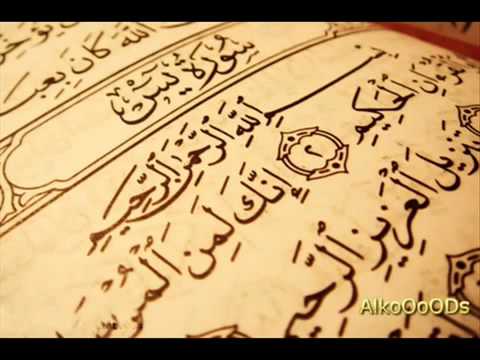 ٱللَّهَ كَانَ بِعِبَا
سُورَةُ يسٓ
بِسْمِ ٱللَّهِ ٱلرَّحْمَٰنِ ٱلرَّحِيمِ
ٱلْحَكِيمِ ٢ إِنَّكَ لَمِنَ ٱلْمُرْسَ
تَنزِيلَ ٱلْعَزِيزِ ٱلرَّحِيمِ
AlkoOoODs